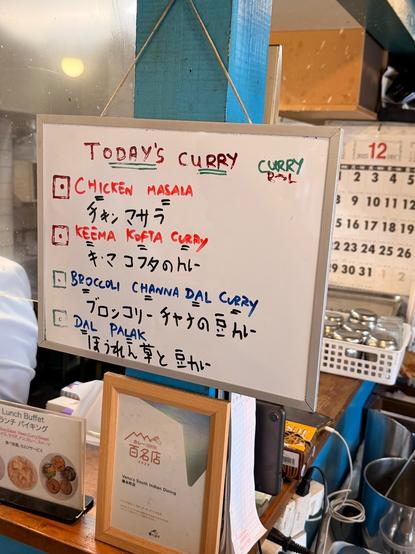 TODAY'S CURRY
CURRY
CHICKEN MASALA
チキン マサラ
KEEMA KOFTA CURRY
キーマ コフタのカレー
BROCCOLI CHANNA DAL CURRY
ブロッコリー チャナの豆カレー
DAL PALAK
ほうれん草と豆カレー
12
Lunch Buffet
ランチ バイキング
百名店
Venu's South Indian Dining